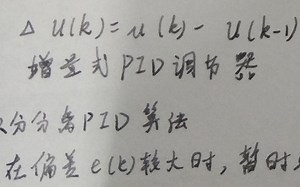 Δ U(k) = u(k) - U(k-1)
增量式 PID 调节器
分分离PID 算法
在偏差 e(k)较大时, 暂时